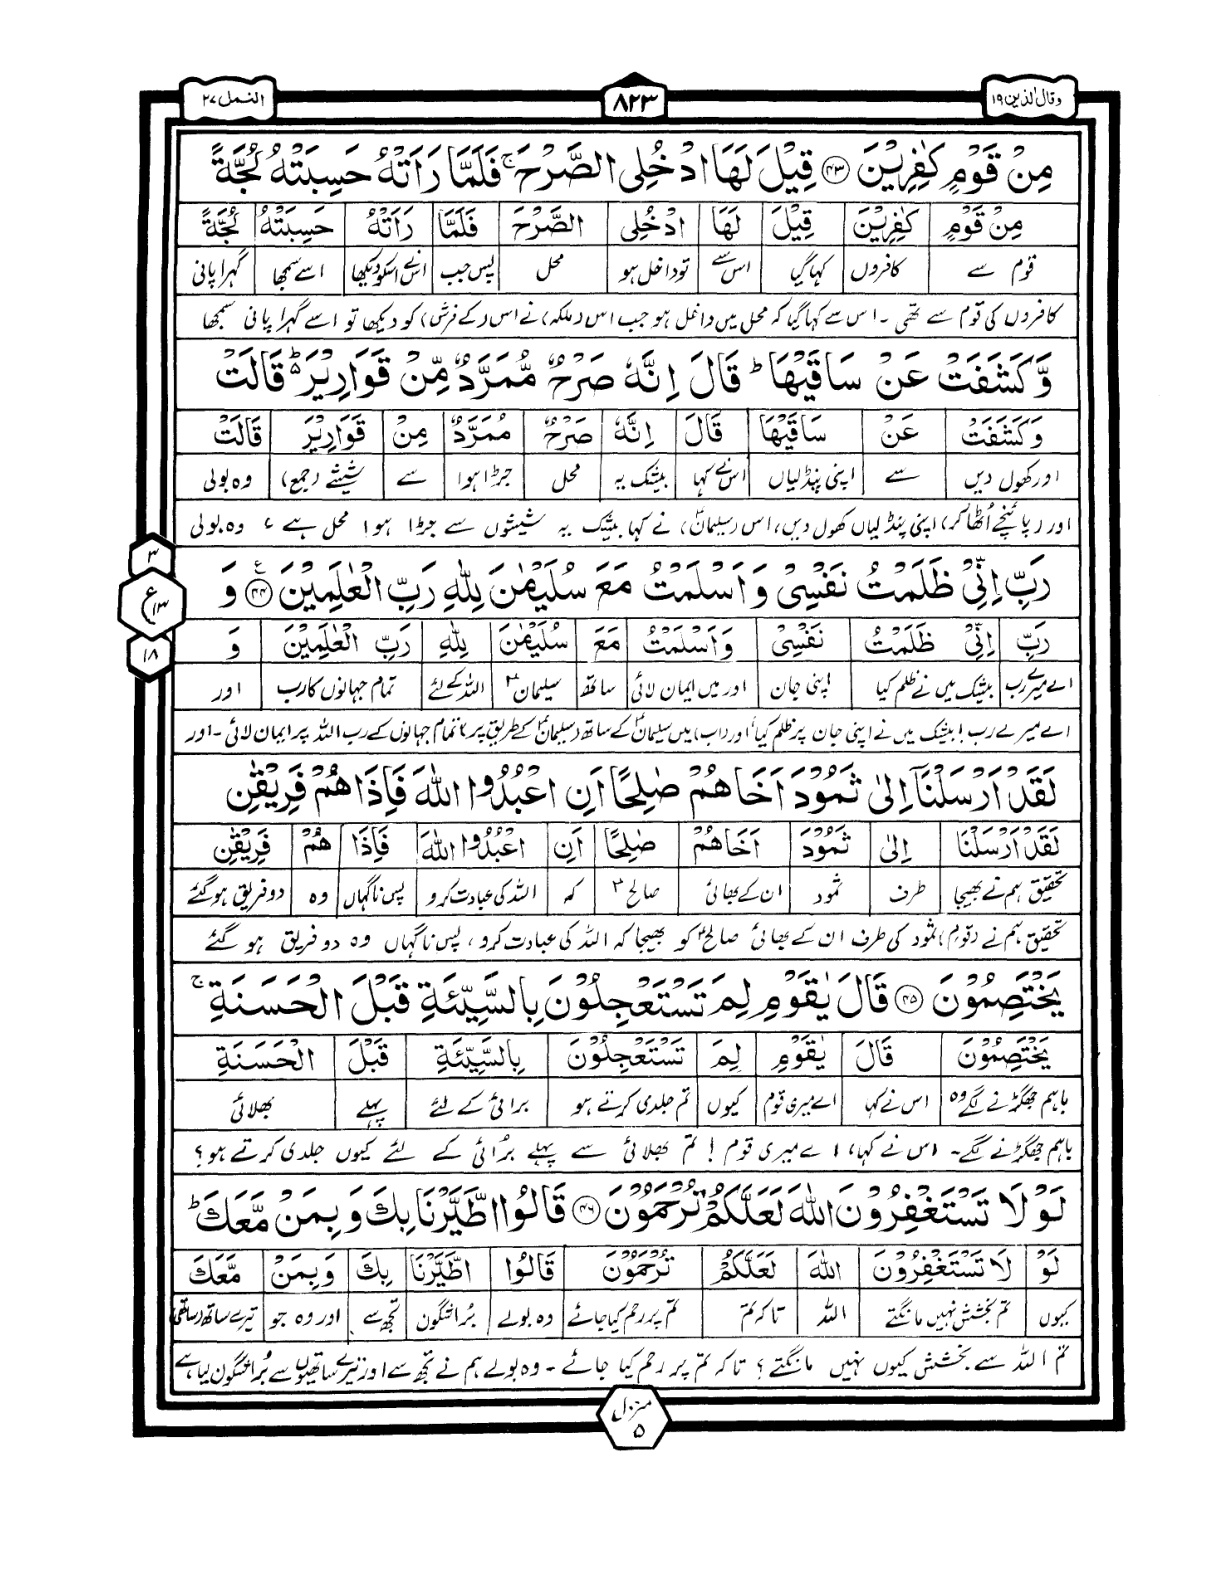 وقال الذین ۱۹
۸۲۳
النمل ۲۷
مِنْ قَوْمٍ كٰفِرِیْنَ ﴿۴۳﴾ قِیْلَ لَهَا ادْخُلِی الصَّرْحَ ۚ فَلَمَّا رَاَتْهُ حَسِبَتْهُ لُجَّةً
مِنْ قَوْمٍ كٰفِرِیْنَ قِیْلَ لَهَا ادْخُلِی الصَّرْحَ فَلَمَّا رَاَتْهُ حَسِبَتْهُ لُجَّةً
قوم سے کافروں کہا گیا اس سے تو داخل ہو محل پس جب اس نے اسکو دیکھا اسے سمجھا گہرا پانی
کافروں کی قوم سے تھی ۔ اس سے کہا گیا کہ محل میں داخل ہو جب اس (ملکہ) نے اس (کے فرش) کو دیکھا تو اسے گہرا پانی سمجھا
وَّ كَشَفَتْ عَنْ سَاقَیْهَا ؕ قَالَ اِنَّهٗ صَرْحٌ مُّمَرَّدٌ مِّنْ قَوَارِیْرَ ؕ۬ قَالَتْ
وَ كَشَفَتْ عَنْ سَاقَیْهَا قَالَ اِنَّهٗ صَرْحٌ مُمَرَّدٌ مِنْ قَوَارِیْرَ قَالَتْ
اور کھول دیں سے اپنی پنڈلیاں اس نے کہا بیشک یہ محل جڑا ہوا سے شیشے (جمع) وہ بولی
اور (پائنچے اُٹھا کر) اپنی پنڈلیاں کھول دیں، اس (سلیمانؑ) نے کہا بیشک یہ شیشوں سے جڑا ہوا محل ہے ، وہ بولی
رَبِّ اِنِّیْ ظَلَمْتُ نَفْسِیْ وَ اَسْلَمْتُ مَعَ سُلَیْمٰنَ لِلّٰهِ رَبِّ الْعٰلَمِیْنَ ﴿۴۴﴾ ع وَ
رَبِّ اِنِّیْ ظَلَمْتُ نَفْسِیْ وَ اَسْلَمْتُ مَعَ سُلَیْمٰنَ لِلّٰهِ رَبِّ الْعٰلَمِیْنَ وَ
اے میرے رب بیشک میں نے ظلم کیا اپنی جان اور میں ایمان لائی ساتھ سلیمانؑ اللہ کے لئے تمام جہانوں کا رب اور
اے میرے رب! بیشک میں نے اپنی جان پر ظلم کیا، اور (اب) میں سلیمانؑ کے ساتھ (سلیمانؑ کے طریق پر) تمام جہانوں کے رب اللہ پر ایمان لائی ۔ اور
۳
ع ۱۳
۱۸
لَقَدْ اَرْسَلْنَاۤ اِلٰی ثَمُوْدَ اَخَاهُمْ صٰلِحًا اَنِ اعْبُدُوا اللّٰهَ فَاِذَا هُمْ فَرِیْقٰنِ
لَقَدْ اَرْسَلْنَا اِلٰی ثَمُوْدَ اَخَاهُمْ صٰلِحًا اَنِ اعْبُدُوا اللّٰهَ فَاِذَا هُمْ فَرِیْقٰنِ
تحقیق ہم نے بھیجا طرف ثمود ان کے بھائی صالحؑ کہ اللہ کی عبادت کرو پس ناگہاں وہ دو فریق ہو گئے
تحقیق ہم نے (قوم) ثمود کی طرف ان کے بھائی صالحؑ کو بھیجا کہ اللہ کی عبادت کرو ، پس ناگہاں وہ دو فریق ہو گئے
یَخْتَصِمُوْنَ ﴿۴۵﴾ قَالَ یٰقَوْمِ لِمَ تَسْتَعْجِلُوْنَ بِالسَّیِّئَةِ قَبْلَ الْحَسَنَةِ ۚ
یَخْتَصِمُوْنَ قَالَ یٰقَوْمِ لِمَ تَسْتَعْجِلُوْنَ بِالسَّیِّئَةِ قَبْلَ الْحَسَنَةِ
باہم جھگڑنے لگے وہ اس نے کہا اے میری قوم کیوں تم جلدی کرتے ہو برائی کے لئے پہلے بھلائی
باہم جھگڑنے لگے۔ اس نے کہا، اے میری قوم ! تم بھلائی سے پہلے بُرائی کے لئے کیوں جلدی کرتے ہو ؟
لَوْ لَا تَسْتَغْفِرُوْنَ اللّٰهَ لَعَلَّكُمْ تُرْحَمُوْنَ ﴿۴۶﴾ قَالُوا اطَّیَّرْنَا بِكَ وَ بِمَنْ مَّعَكَ ؕ
لَوْ لَا تَسْتَغْفِرُوْنَ اللّٰهَ لَعَلَّكُمْ تُرْحَمُوْنَ قَالُوا اطَّیَّرْنَا بِكَ وَ بِمَنْ مَّعَكَ
کیوں تم بخشش نہیں مانگتے اللہ تاکہ تم تم پر رحم کیا جائے وہ بولے بُرا شگون تجھ سے اور وہ جو تیرے ساتھ (ساتھی)
تم اللہ سے بخشش کیوں نہیں مانگتے ؟ تاکہ تم پر رحم کیا جائے ۔ وہ بولے ہم نے تجھ سے اور تیرے ساتھیوں سے بُرا شگون لیا ہے
منزل ۵